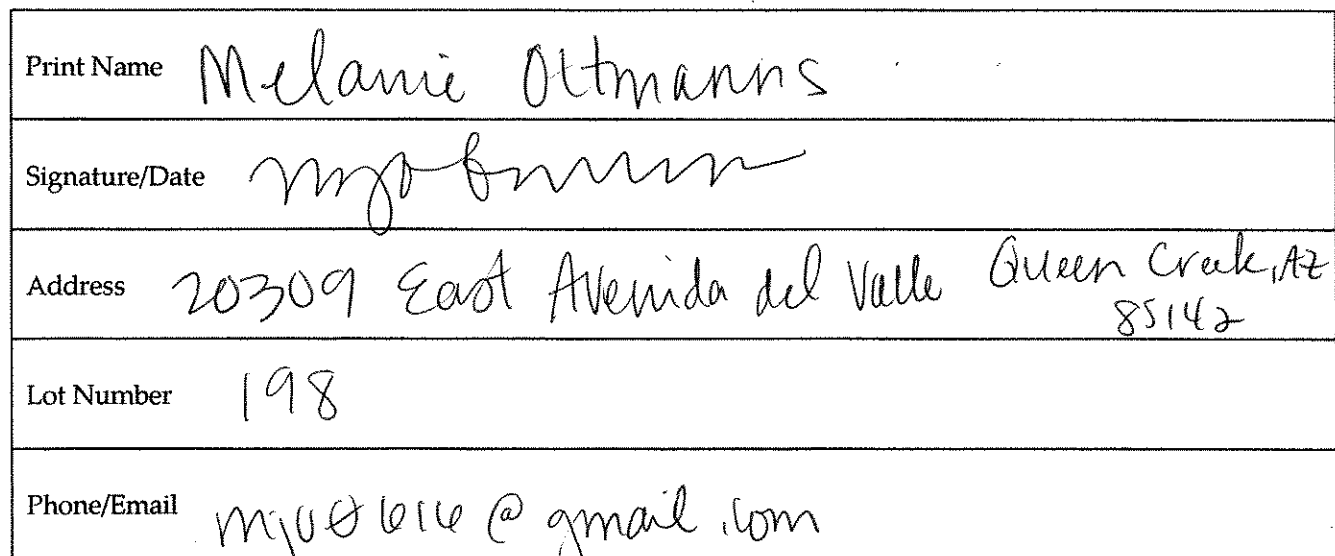 Print Name Melanie Oltmanns
Signature/Date
Address 20309 East Avenida del Valle Queen Creek, AZ
85142
Lot Number 198
Phone/Email @gmail.com